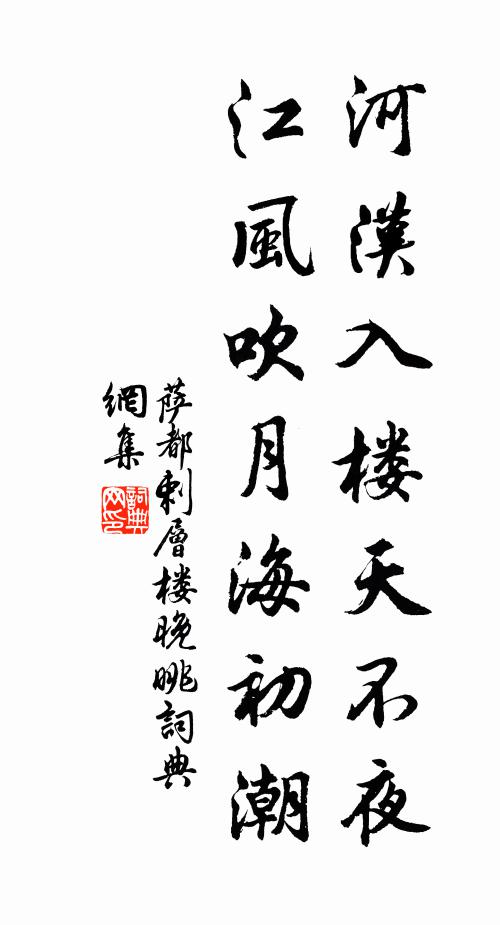 河漢入楼天不夜
江風吹月海初潮
萨都剌層楼晚眺詞典
網集
詞典
网印